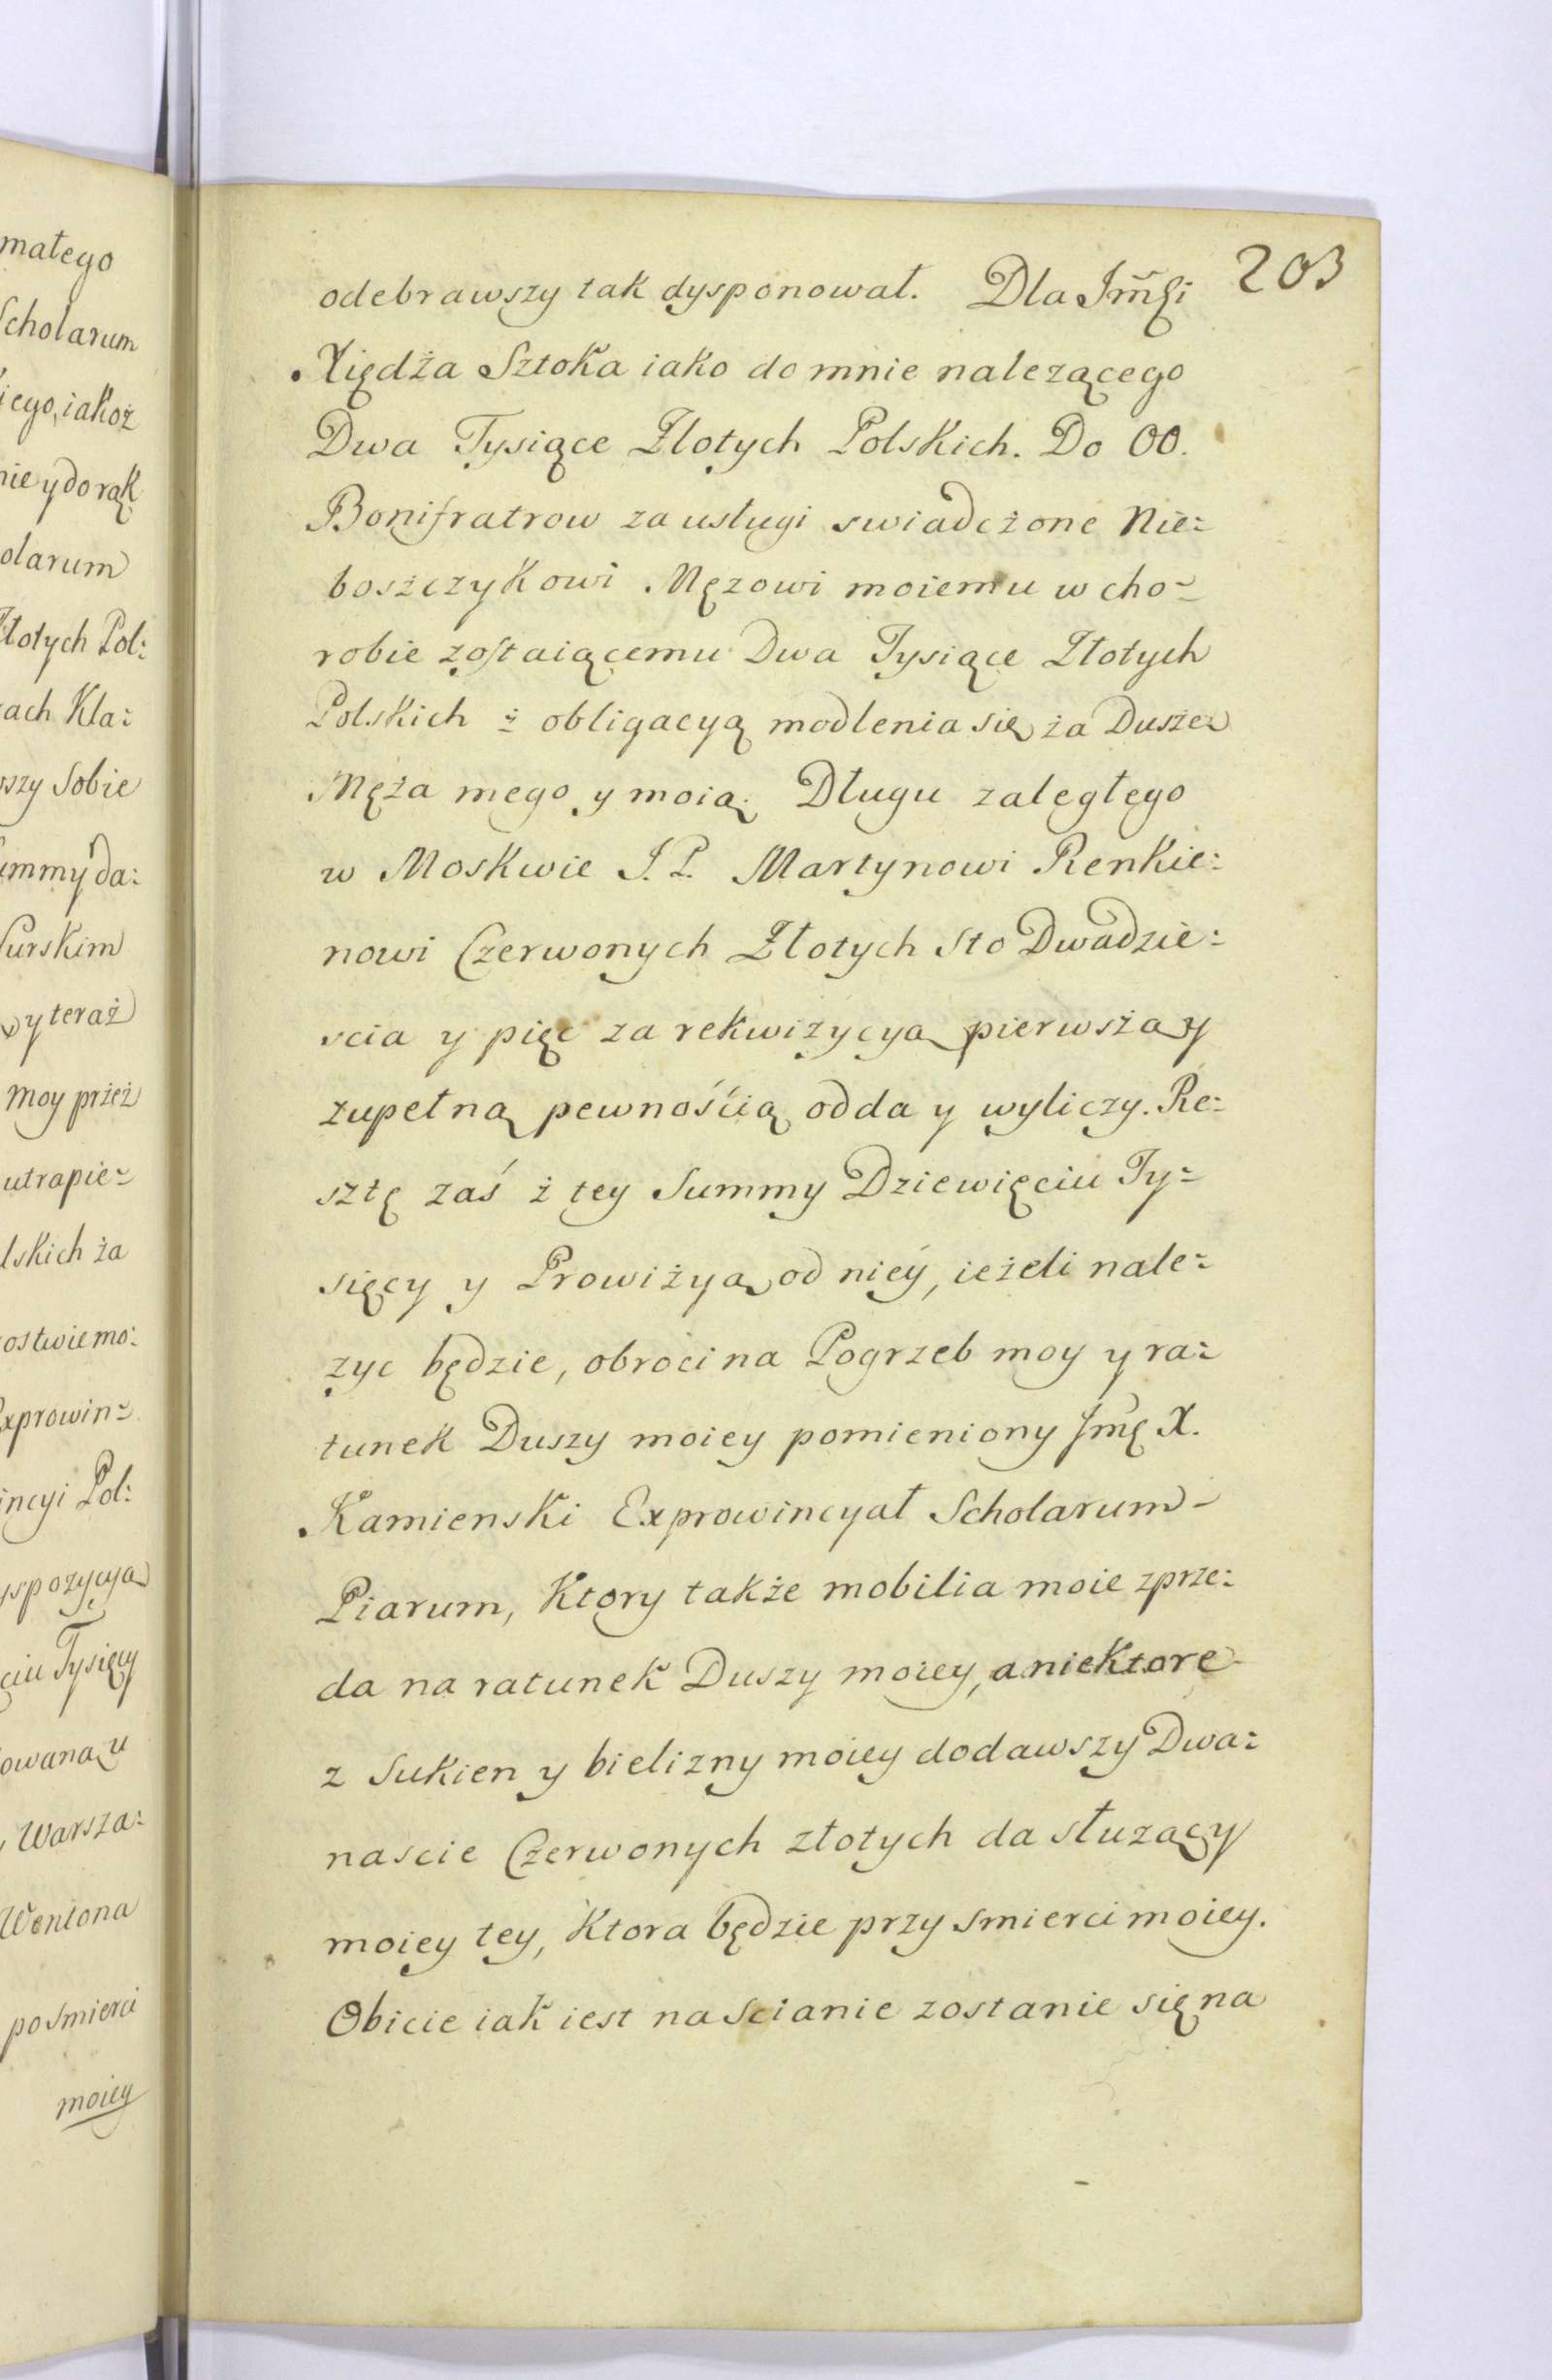 małego
Scholarum
iego, iakoż
nie y do rąk
olarum
Złotych Pol:
ach Kla:
wszy Sobie
ummy da:
Purskim
y teraż
moy przeż
utrapie:
lskich ża
ostwie mo:
Exprowin:
incyi Pol:
yspozycyą
ciu Tysięcy
owaną u
Warsza:
po Smierci
moiey
203
odebrawszy tak dysponował. Dla Jmći
Xiędża Sztoka iako do mnie nalezącego
Dwa Tysiące Złotych Polskich. Do OO.
Bonifratrow za usługi swiadczone Nie:
boszczykowi Męzowi moiemu w cho:
robie zostaiącemu Dwa Tysiące Złotych
Polskich ż obligacyą modlenia się ża Dusze
Męża mego y moią. Długu zaległego
w Moskwie J. P. Martynowi Renkie:
nowi Czerwonych Złotych Sto Dwadzie:
scia y pięc za rekwizycyą pierwszą y
zupełną pewnością odda y wyliczy. Re:
sztę zaś ż tey Summy Dziewięciu Ty:
sięcy y Prowiżyą od niey, ieżeli nale:
zyc będzie, obroci na Pogrzeb moy y ra:
tunek Duszy moiey pomieniony Jmć X.
Kamienski Exprowincyał Scholarum
Piarum, Ktory także mobilia moie zprze:
da na ratunek Duszy moiey, a niektore
z Sukien y bielizny moiey dodawszy Dwa:
nascie Czerwonych złotych da słuzący
moiey tey, Ktora będzie przy smierci moiey.
Obicie iak iest na Scianie zostanie się na